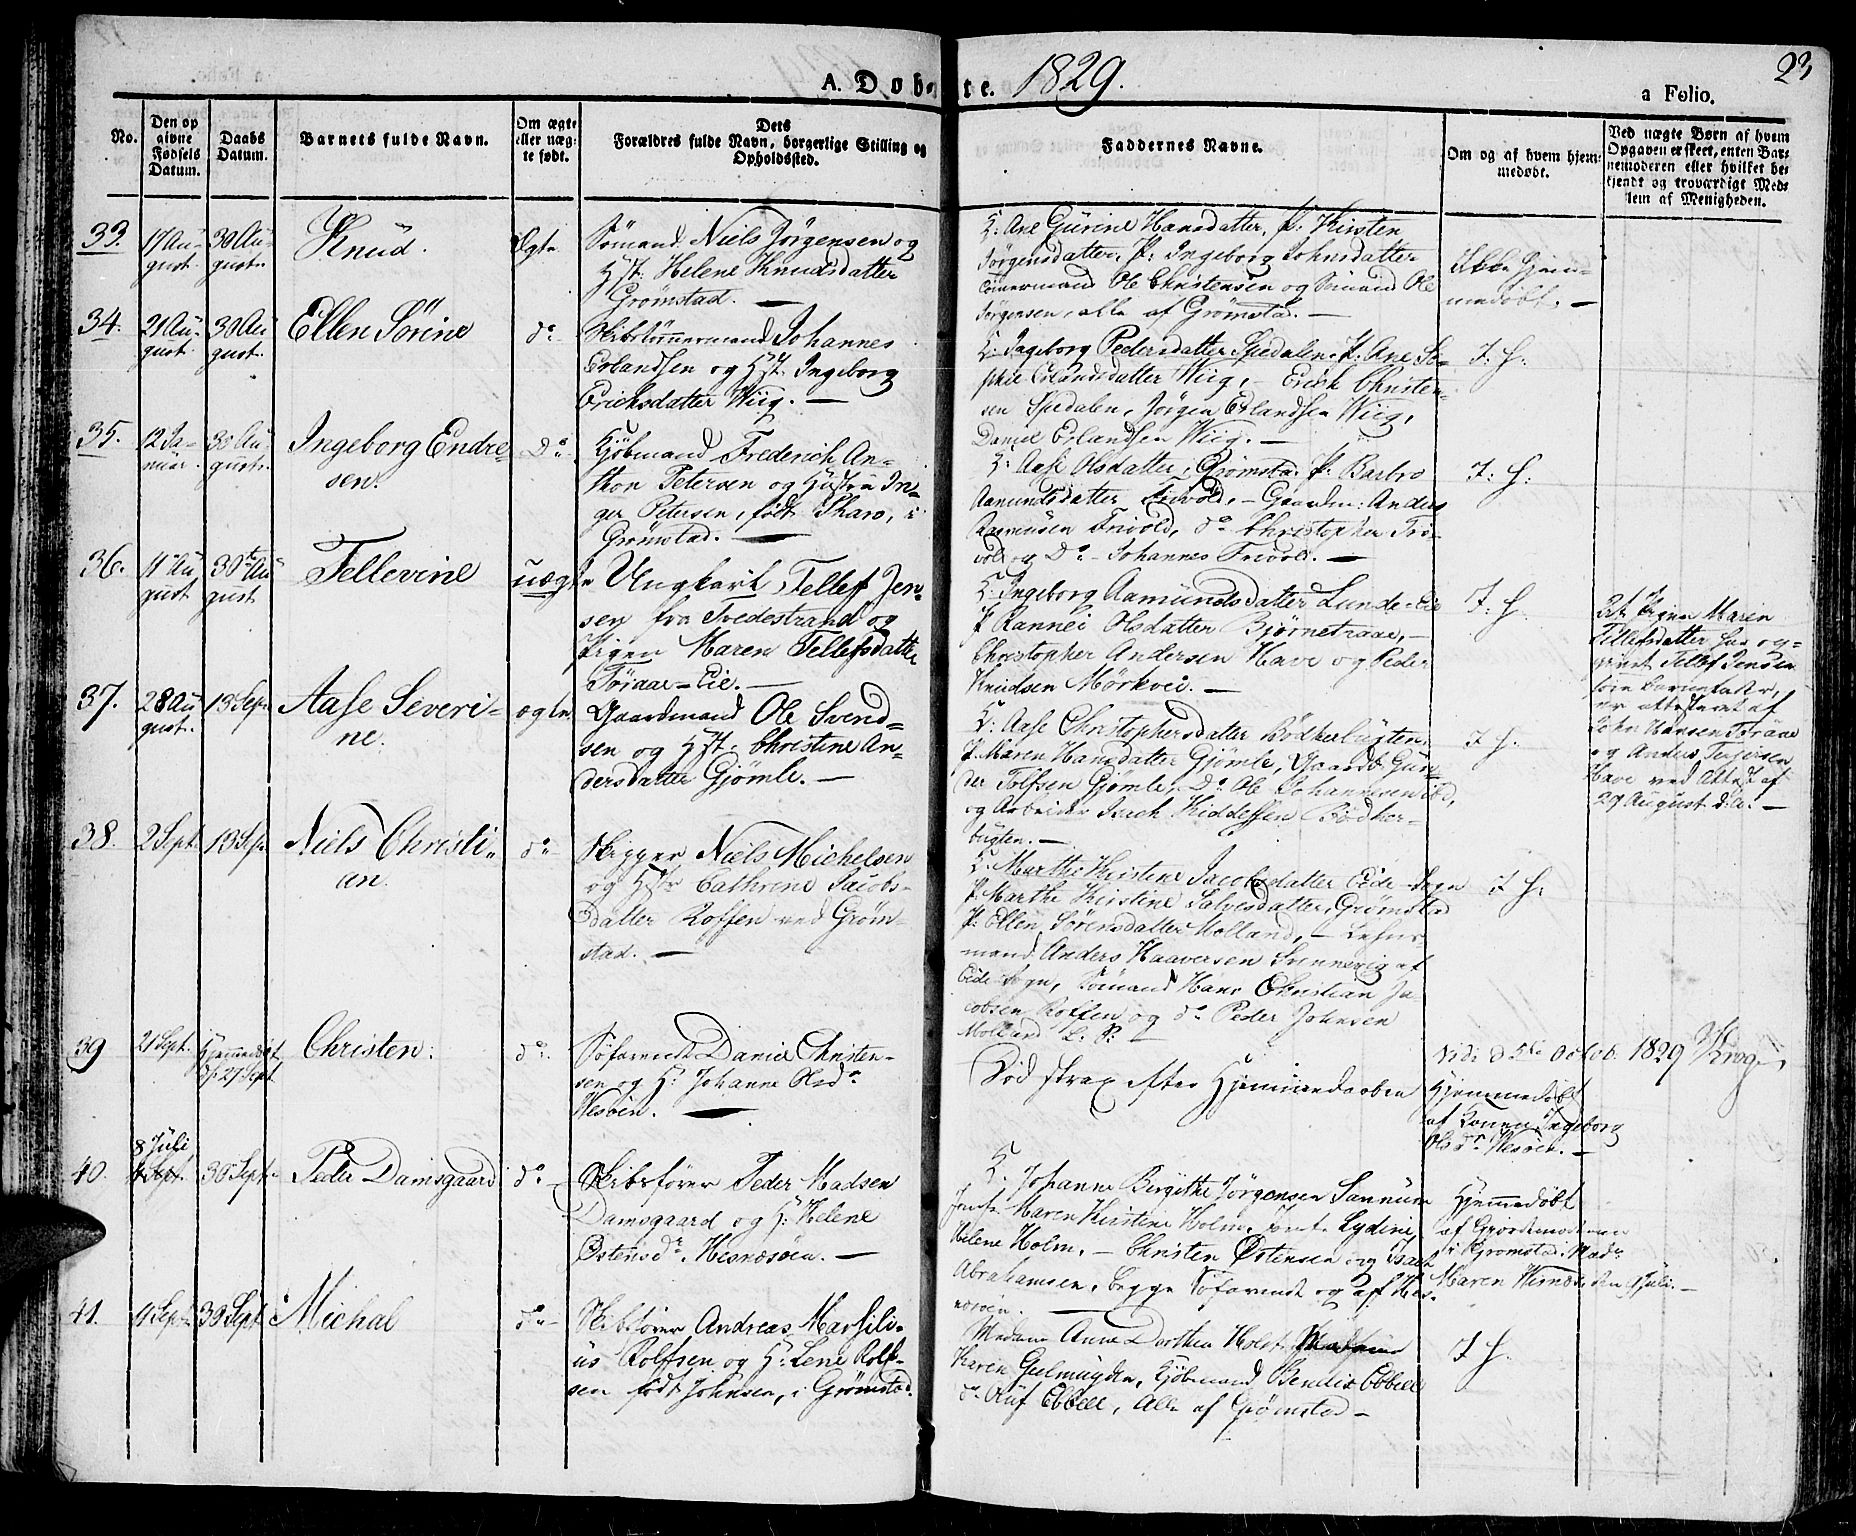 A. Døbte. 1829.
23
a Folio.
No.
Den op
givne
Fødsels
Datum.
Daabs
Datum.
Barnets fulde Navn.
Om ægte
eller uæg-
te født.
Dets
Forældres fulde Navn, borgerlige Stilling og
Opholdssted.
Faddernes Navne.
Om og af hvem hjem-
medøbt.
Ved uægte Børn af hvem
Opgaven er skeet, enten Bar-
nemoderen eller hvilket be-
kjendt og troværdigt Med-
lem af Menigheden.
33.
17 Au-
gust.
30 Au-
gust.
Knud.
Ægte
Sømand Niels Jørgensen og
Hst. Helene Knudsdatter
Grømstad. —
K: Ane Gurine Hansdatter, P. Kirsten
Jørgensdatter, P: Ingeborg Johnsdatter
Tømermand Ole Christensen og Sømand Ole
Jørgensen, alle af Grømstad. —
Ikke Hjem-
medøbt. —
34.
21 Au-
gust.
30 Au
gust.
Ellen Sørine
do
Skibstømmermand Johannes
Erlandsen og Hst. Ingeborg
Erichsdatter Wiig. —
K: Ingeborg Pedersdatter Spedalen, P. Ane So-
phie Erlandsdatter Wiig, — Erich Christen-
sen Spedalen, Jørgen Erlandsen Wiig,
Daniel Erlandsen Wiig. —
I: H:
35.
12 Ja-
nuar.
30 Au-
gust.
Ingeborg Endre-
sen.
Do
Kjøbmand Frederich An-
thon Petersen og Hustru In-
ger Petersen, født Tharo, i
Grømstad. —
K: Aase Olsdatter, Grømstad, P. Barbro
Aamundsdatter Frivold, — Gaardm: Anders
Rasmusen Frivold, do Christopher Fri-
vold og Do Johannes Frivold. —
I: H:
36.
11 Au
gust
30te Au
gust
Tellevine
uægte
Ungkarl Tellef Jen-
sen fra Tvedestrand og
Pigen Maren Tellefsdatter
Töraas-Eie. —
K: Ingeborg Aamundsdatter Lunde-Eie
P Rannei Olsdatter Bjørnetraae, —
Christopher Andersen Have og Peder
Knudsen Mörkvei. —
I: H:
At Pigen Maren
Tellefsdatter har op-
givet Tellef Jensen
som Barnefader,
er attesteret af
John Hansen
og Anders Tarjeisen
Have ved Attest af
29 August d: A: —
37.
28 Au
gust.
13 Sept.
Aase Severi-
ne.
ægte
Gaardmand Ole Svend-
sen og Hst. Christine An-
dersdatter Gjömle. —
K: Aase Christophersdatter Bödkerbugten,
P. Maren Hansdatter Gjömle, Gaardb: Gun-
der Tolfsen Gjömle, Do Ole Johannesen ibd,
og Arbeider Kiddelsen Bödker-
bugten. —
I H:
38.
2 Sept.
13 Sept.
Niels Christi-
an.
do
Skipper Niels Michelsen
og Hstr Cathrine Jacobs-
datter Roffen ved Gröm-
stad. —
K: Marthe Kirstine Jacobsdatter Eide-Sogn
P. Marthe Kirstine Salvesdatter, Grømstad
P: Ellen Sørensdatter Molland, — Lehns-
mand Anders Haaversen Svennevig af
Eide-Sogn, Sømand Hans Christian Ja-
cobsen Roffen og do Peder Johnsen
Molland L. S.
I H:
39
21 Sept.
Hjemmedøbt
d: 27 Sept
Christen:
do
Söfarende Daniel Christen-
sen og H: Johanne Olsdr
Hesöen. —
Död strax efter Hjemmedaaben
vide d 5te Octob. 1829 Krog
Hjemmedøbt
af Konen Ingeborg
Olsdr Hesöen. —
40.
8 Juli
4 Sept.
30 Sept.
Peder Damsgaard
do
Skibsfører Peder Madsen
Damsgaard og H: Helene
Østensdr. Hesnæsöen. —
K: Johanne Birgithe Jørgensen Sannum
Jomfr. Maren Kirstine Holm, Jomf. Lydine
Helene Holm, — Christen Østensen og Isach
Abrahamsen, begge Söfarende og af Hes-
næsöen. —
Hjemmedöbt
af Gjordemoderen
i Grömstad. Mad.
Maren den 9 Juli. —
41.
4 Sept.
30 Sept.
Michal
do
Skibsfører Andreas Marsili-
us Rolfsen og H: Lene Rolf-
sen født Johnsen, i Grömstad.
Madame Anne Dorthea Holst,
Karen Gulmagden, Kjøbmand Bendix Ebbell
do Oluf Ebbell, Alle af Grømstad —
I H.